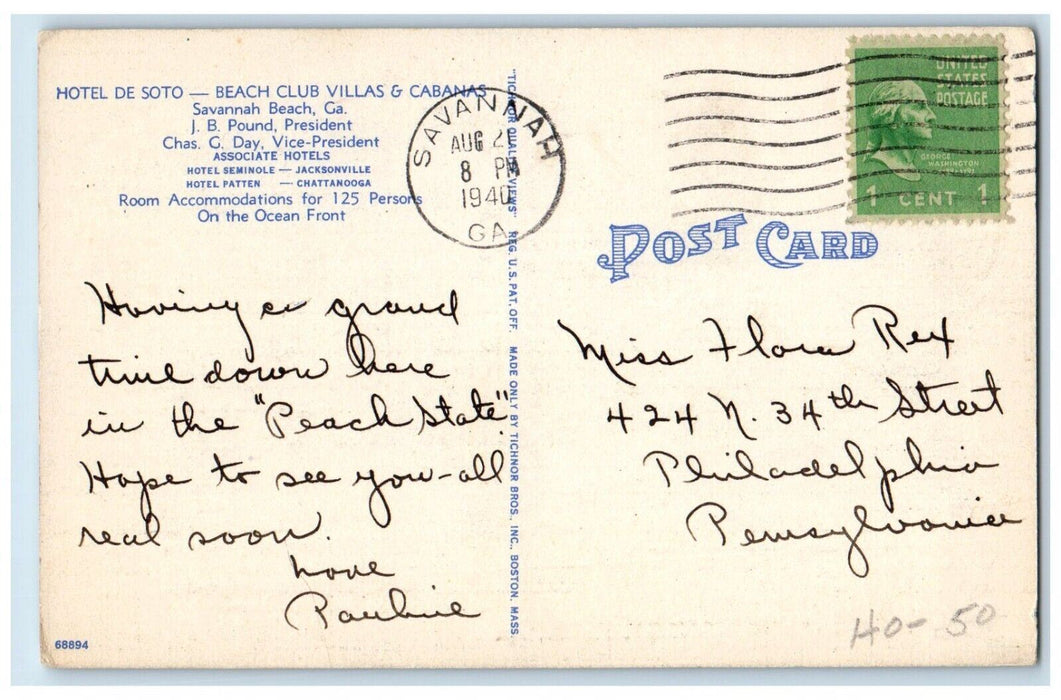 HOTEL DE SOTO — BEACH CLUB VILLAS & CABANAS
Savannah Beach, Ga.
J. B. Pound, President
Chas. G. Day, Vice-President
ASSOCIATE HOTELS
HOTEL SEMINOLE — JACKSONVILLE
HOTEL PATTEN — CHATTANOOGA
Room Accommodations for 125 Persons
On the Ocean Front
SAVANNAH
AUG 21
8 PM
1940
GA.
UNITED
STATES
POSTAGE
GEORGE
WASHINGTON
1 CENT 1
POST CARD
"TICHNOR QUALITY VIEWS" REG. U.S. PAT. OFF. MADE ONLY BY TICHNOR BROS., INC., BOSTON, MASS.
Having a grand
time down here
in the "Peach State".
Hope to see you-all
real soon.
Love
Pauline
Miss Flora Rex
424 N. 34th Street
Philadelphia
Pennsylvania
68894
40- 50